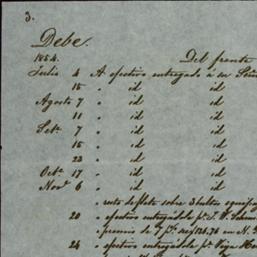 3.
Debe.
Del frente
1854.
Julio 4 A efectivo entregado á su
15 " id id
Agosto 7 " id id
11 " id id
Set.e 7 " id id
15 " id id
23 " id id
Oct.e 17 " id id
Nov.e 6 " id id
" de flete sobre 3 bultos
20 " efectivo entregádole p.r
" premio de 7 p.%
24 " efectivo entregádole p.r Vega